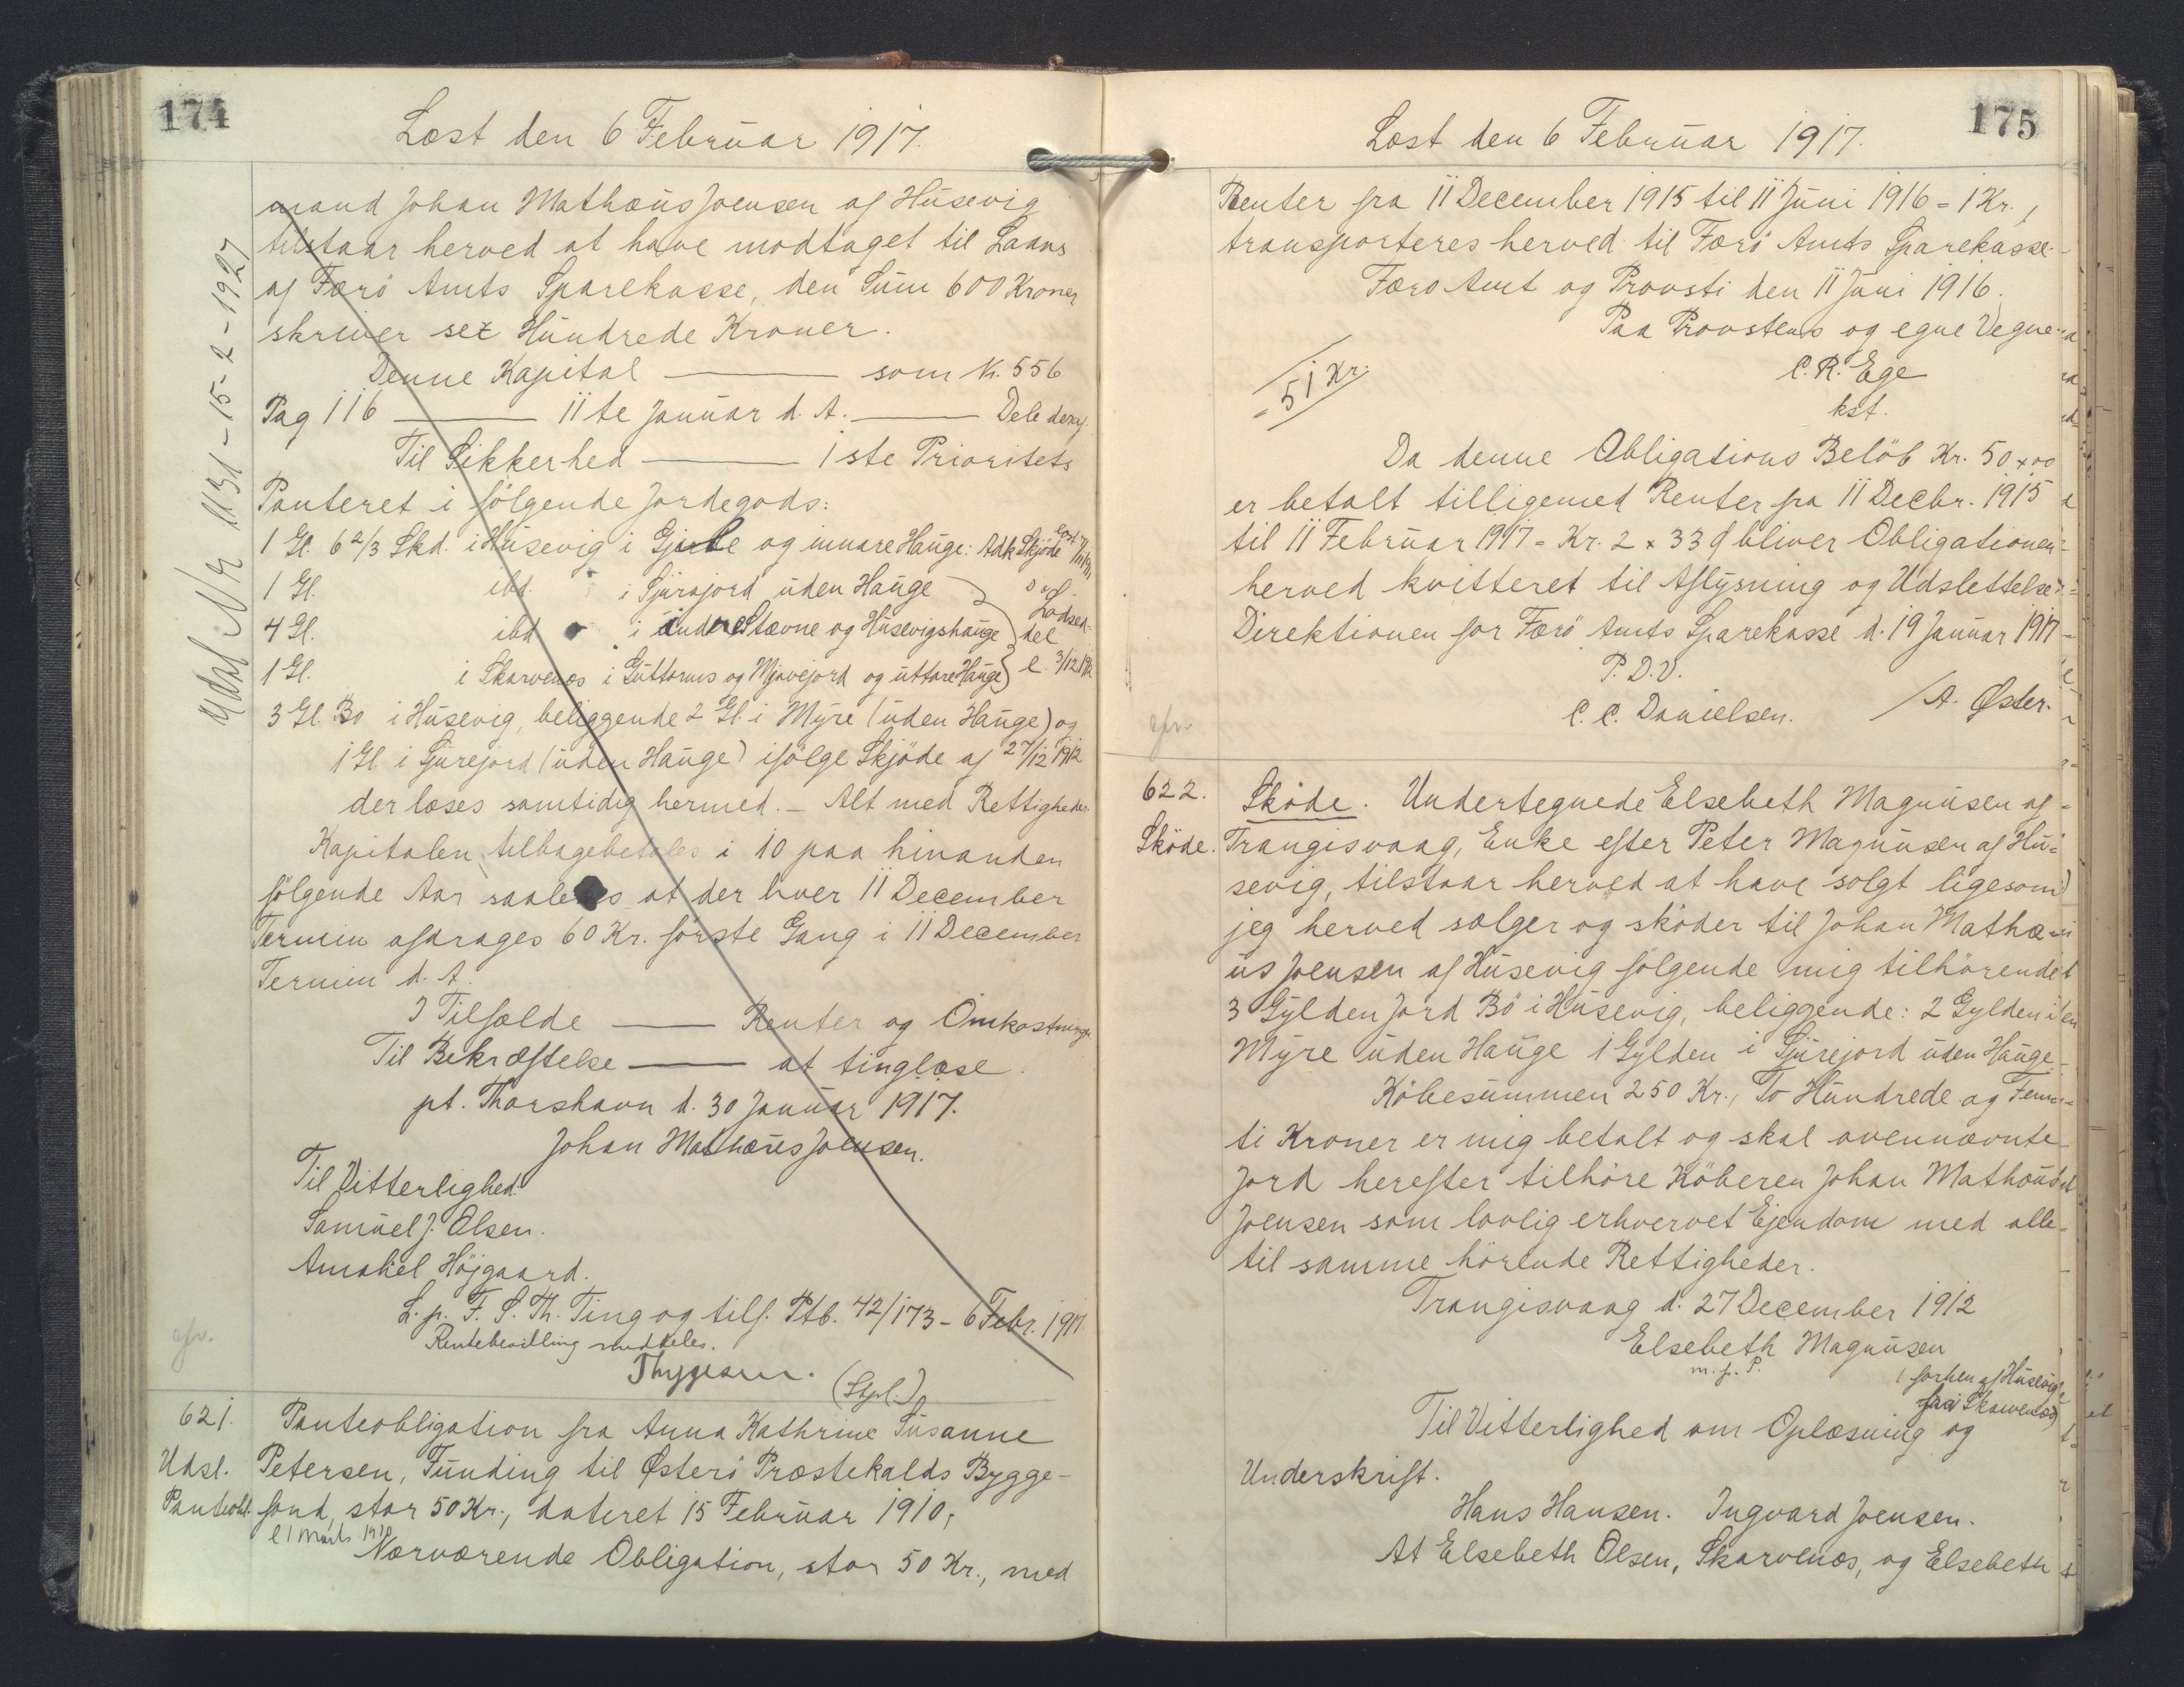 174
Læst den 6 Februar 1917.
mand Johan Mathæus Joensen af Husevig
tilstaar herved at have modtaget til Laans
af Færö Amts Sparekasse, den Sum 600 Kroner
skriver sex Hundrede Kroner.
Denne Kapital ——— som Nr. 556
Pag 116 ——— 11te Januar d. A. ——— Dele deraf.
Til Sikkerhed ——— 1ste Prioritets
Panteret i følgende Jordegods:
1 Gl. 6 2/3 Skd. i Husevig i og innare Hauge: Adk Skjöde
1 Gl. ibd. i Sjurajord uden Hauge
4 Gl. ibd i Stævne og Husevigshauge Lodsed-
del
1 Gl. i Skarvenæs i Guttorms og Mjovejord og uttare Hauge l. 3/12 1912
3 Gl. Bø i Husevig, beliggende 2 Gl. i Myre (uden Hauge) og
1 Gl. i Sjurejord (uden Hauge) ifølge Skjöde af 27/12 1912
der læses samtidig hermed. – Alt med Rettigheder.
Kapitalen tilbagebetales i 10 paa hinanden
følgende Aar saaledes at der hver 11 December
Termin afdrages 60 Kr. første Gang i 11 December
Termin d. A.
I Tilfælde ——— Renter og Omkostninger
Til Bekræftelse ——— at tinglæse.
pt. Thorshavn d. 30 Januar 1917.
Johan Mathæus Joensen.
Til Vitterlighed:
Samuel J. Olsen.
Højgaard.
L. p. F. S. Th. Ting og tilf. Ptb. 42/173 – 6 Febr. 1917.
Rentebevilling meddeles.
Thygesen. (Stpl.)
Udsl Nr 1131 - 15-2-1927
621. Panteobligation fra Anna Kathrine Susanne
Udsl. Petersen, Funding til Østerö Præstekalds Bygge-
Panteobl. fond, stor 50 Kr., dateret 15 Februar 1910,
l 1 Marts 1910
Nærværende Obligation, stor 50 Kr., med
175
Læst den 6 Februar 1917.
Renter fra 11 December 1915 til 11 Juni 1916 = 1 Kr.,
transporteres herved til Færö Amts Sparekasse.
Færö Amt og Provsti den 11 Juni 1916.
Paa Provstens og egne Vegne.
C. R. Ege
kst.
= 51 Kr.
Da denne Obligations Beløb Kr. 50 x 00
er betalt tilligemed Renter fra 11 Decbr. 1915
til 11 Februar 1917 = Kr. 2 x 33 Ø bliver Obligationen
herved kvitteret til Aflysning og Udslettelse.
Direktionen for Færö Amts Sparekasse d. 19 Januar 1917
P. D. V.
C. C. Danielsen. / A. Øster.
622. Sköde. Undertegnede Elsebeth Magnusen af
Sköde. Trangisvaag, Enke efter Peter Magnusen af Hu-
sevig, tilstaar herved at have solgt ligesom
jeg herved sælger og sköder til Johan Mathæ-
us Joensen af Husevig følgende mig tilhörende
3 Gylden Jord Bö i Husevig, beliggende: 2 Gylden i
Myre uden Hauge 1 Gylden i Sjurejord uden Hauge
Köbesummen 250 Kr., To Hundrede og Fem-
ti Kroner er mig betalt og skal ovennævnte
Jord herefter tilhöre Köberen Johan Mathæus
Joensen som lovlig erhvervet Ejendom med alle
til samme hörende Rettigheder.
Trangisvaag d. 27 December 1912
Elsebeth Magnusen
m. f. P.
(forhen af Husevig
fra Skarvenæs)
Til Vitterlighed om Oplæsning og
Underskrift.
Hans Hansen. Ingvard Joensen.
At Elsebeth Olsen, Skarvenæs, og Elsebeth